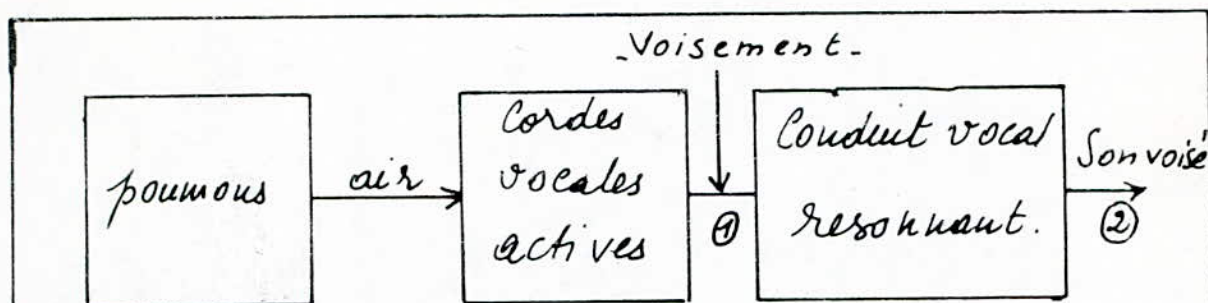 _Voisement_
poumons
air
Cordes
vocales
actives
①
Conduit vocal
resonnant.
Son voisé
②